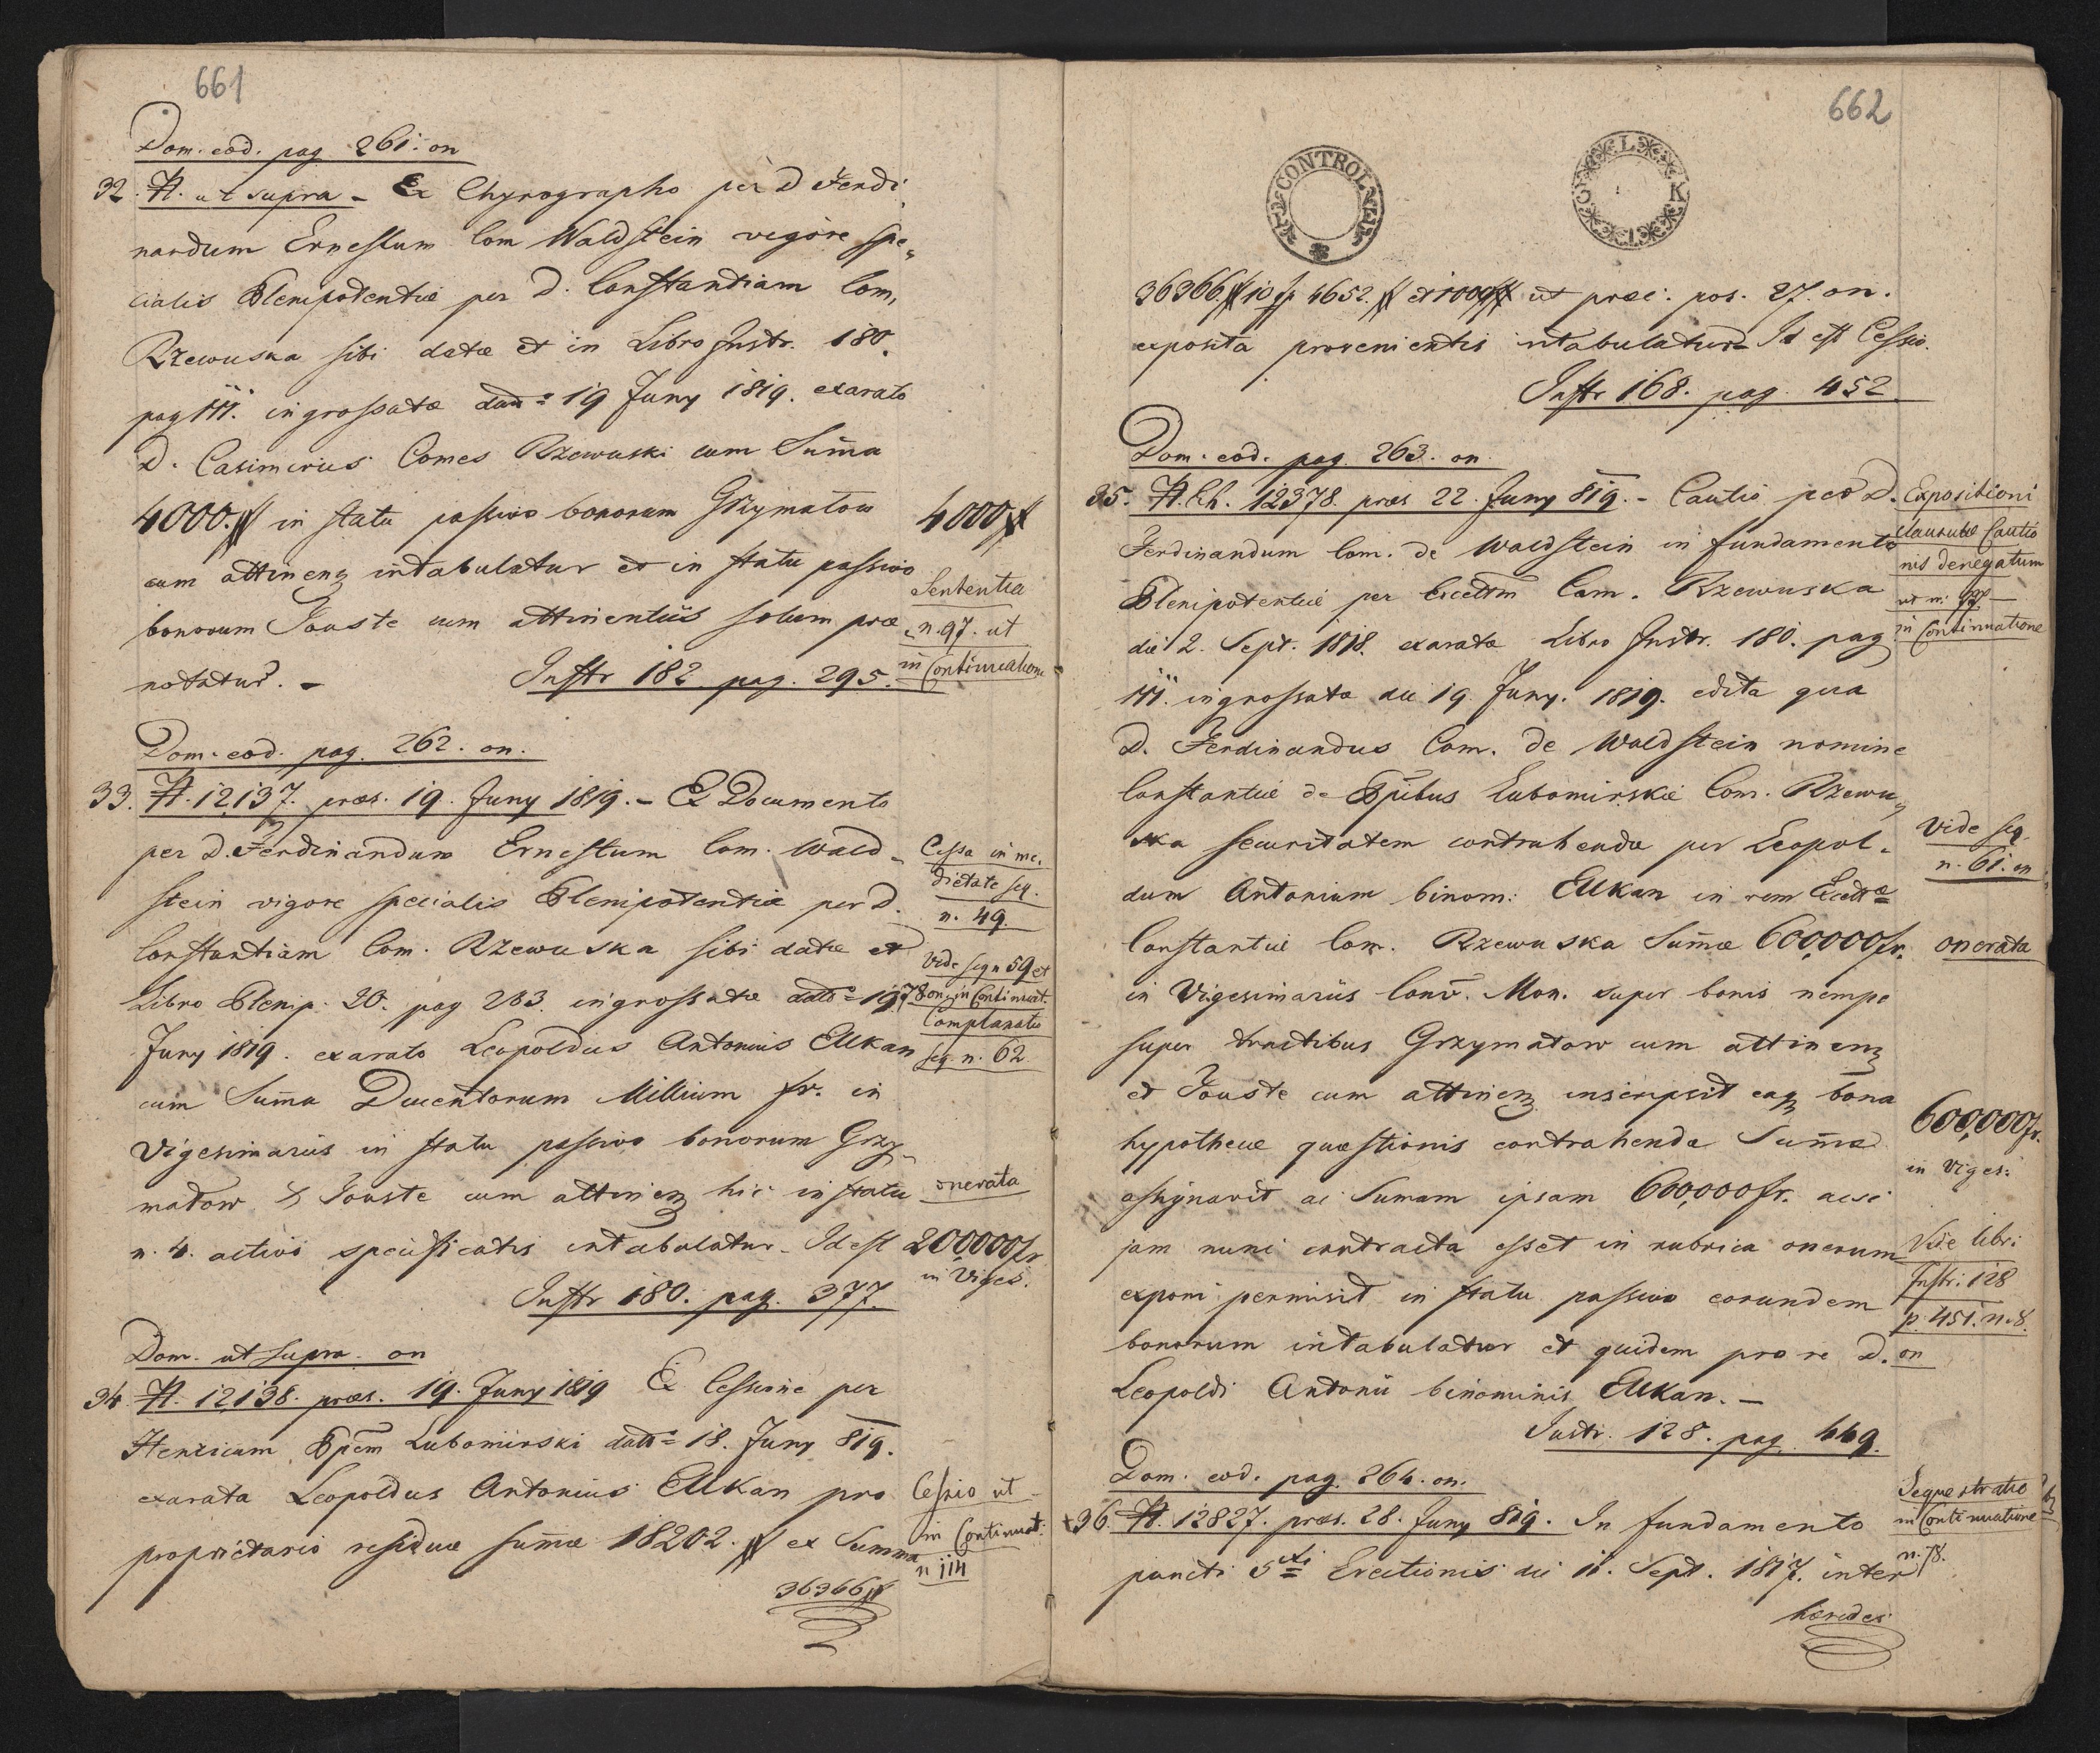 661
Dom. eod. pag. 261. on
32. N. ut supra - Ex Chyrographo per D Ferdi
nandum Ernestum Com Waldstein vigore spe„
cialis Plenipotentiæ per D. Constantiam Com.
Rzewuska sibi datæ et in Libro Instr. 180.
pag 111. ingrossatæ ddto 19 Juny 1819. exarato
D. Casimirus Comes Rzewuski cum Summa
4000.# in statu passivo bonorum Grzymatow
cum attinen intabulatur et in statu passivo
bonorum Touste cum attinentiis solum præ
notatur. -
Instr 182. pag. 295.
4000#
Sententia
n. 97. ut
in Continuatione
Dom. eod. pag. 262. on.
33. N. 12,137. præs. 19. Juny 1819. - Ex Documento
per D. Ferdinandum Ernestum Com. Wald-
stein vigore specialis Plenipotentiæ per D.
Constantiam Com. Rzewuska sibi datæ et
Libro Plenip. 20. pag 283. ingrossatæ ddto 19.
Juny 1819. exarato Leopoldus Antonius Elkan
cum Summa Ducentorum Millium fr. in
Vigesimariis in statu passivo bonorum Grzy-
matow & Touste cum attinen hic in statu
n. 4. activo specificatis intabulatur. Id est
Instr 180. pag. 377.
Cessa in me.
dietate seq.
n. 49.
Vide seq n 59 et
78 on in Continuat.
Complanatio
seq n. 62
onerata
200,000 fr
in Viges.
Dom. ut supra. on
34 N. 12,138. præs. 19. Juny 1819 Ex Cessione per
Henricum Ppem Lubomirski ddto 18. Juny 819.
exarata Leopoldus Antonius Elkan pro
proprietario residuæ summæ 18202.# ex Summa
36366#
Cessio ut
in Continuat:
n 114
662
CONTROL
36366.# 10 4652.# et 1000# ut præc. pos. 27. on.
exposita provenientis intabulatur Id est Cessio.
Instr 168. pag. 452.
Dom. eod. pag. 263. on
35. N. Ex. 12378. præs 22. Juny 819. - Cautio per D.
Ferdinandum Com. de Waldstein in fundamento
Plenipotentiæ per Excettm Com. Rzewuska
die 2. Sept. 1818. exaratæ Libro Instr. 180. pag
111. ingrossatæ die 19. Juny. 1819. edita qua
D. Ferdinandus Com. de Waldstein nomine
Constantiæ de Ppibus Lubomirskie Com. Rzewu„
ska securitatem contrahendæ per Leopol-
dum Antonium binom: Elkan in rem Excettæ
Constantiæ Com. Rzewuska Summæ 600,000 fr.
in Vigesimariis Conv. Mon. super bonis nempe
super tractibus Grzymatow cum attinen
et Touste cum attinen inscripsit eaq bona
hypothecæ quæstionis contrahendæ Summæ
assignavit ac Sumam ipsam 600,000 fr. acsi
jam nunc contracta esset in rubrica onerum
exponi permisit in statu passivo eorundem
bonorum intabulatur et quidem pro re D.
Leopoldi Antonii binominis Elkan. -
Instr. 128. pag. 449.
Expositioni
clausulæ Cautio
nis denegatum
ut n:
in Continuatione
Vide seq.
n. 61. on
onerata
600,000 fr.
in Viges:
Vide libri
Instr: 128
p. 451. n. 8.
on
Dom. eod. pag. 264. on.
+36. N. 12827. præs. 28. Juny 819. In fundamento
puncti 5ti Erectionis die 11. Sept. 1817. inter
hæredes
Sequestratio
in Continuatione
n. 78.